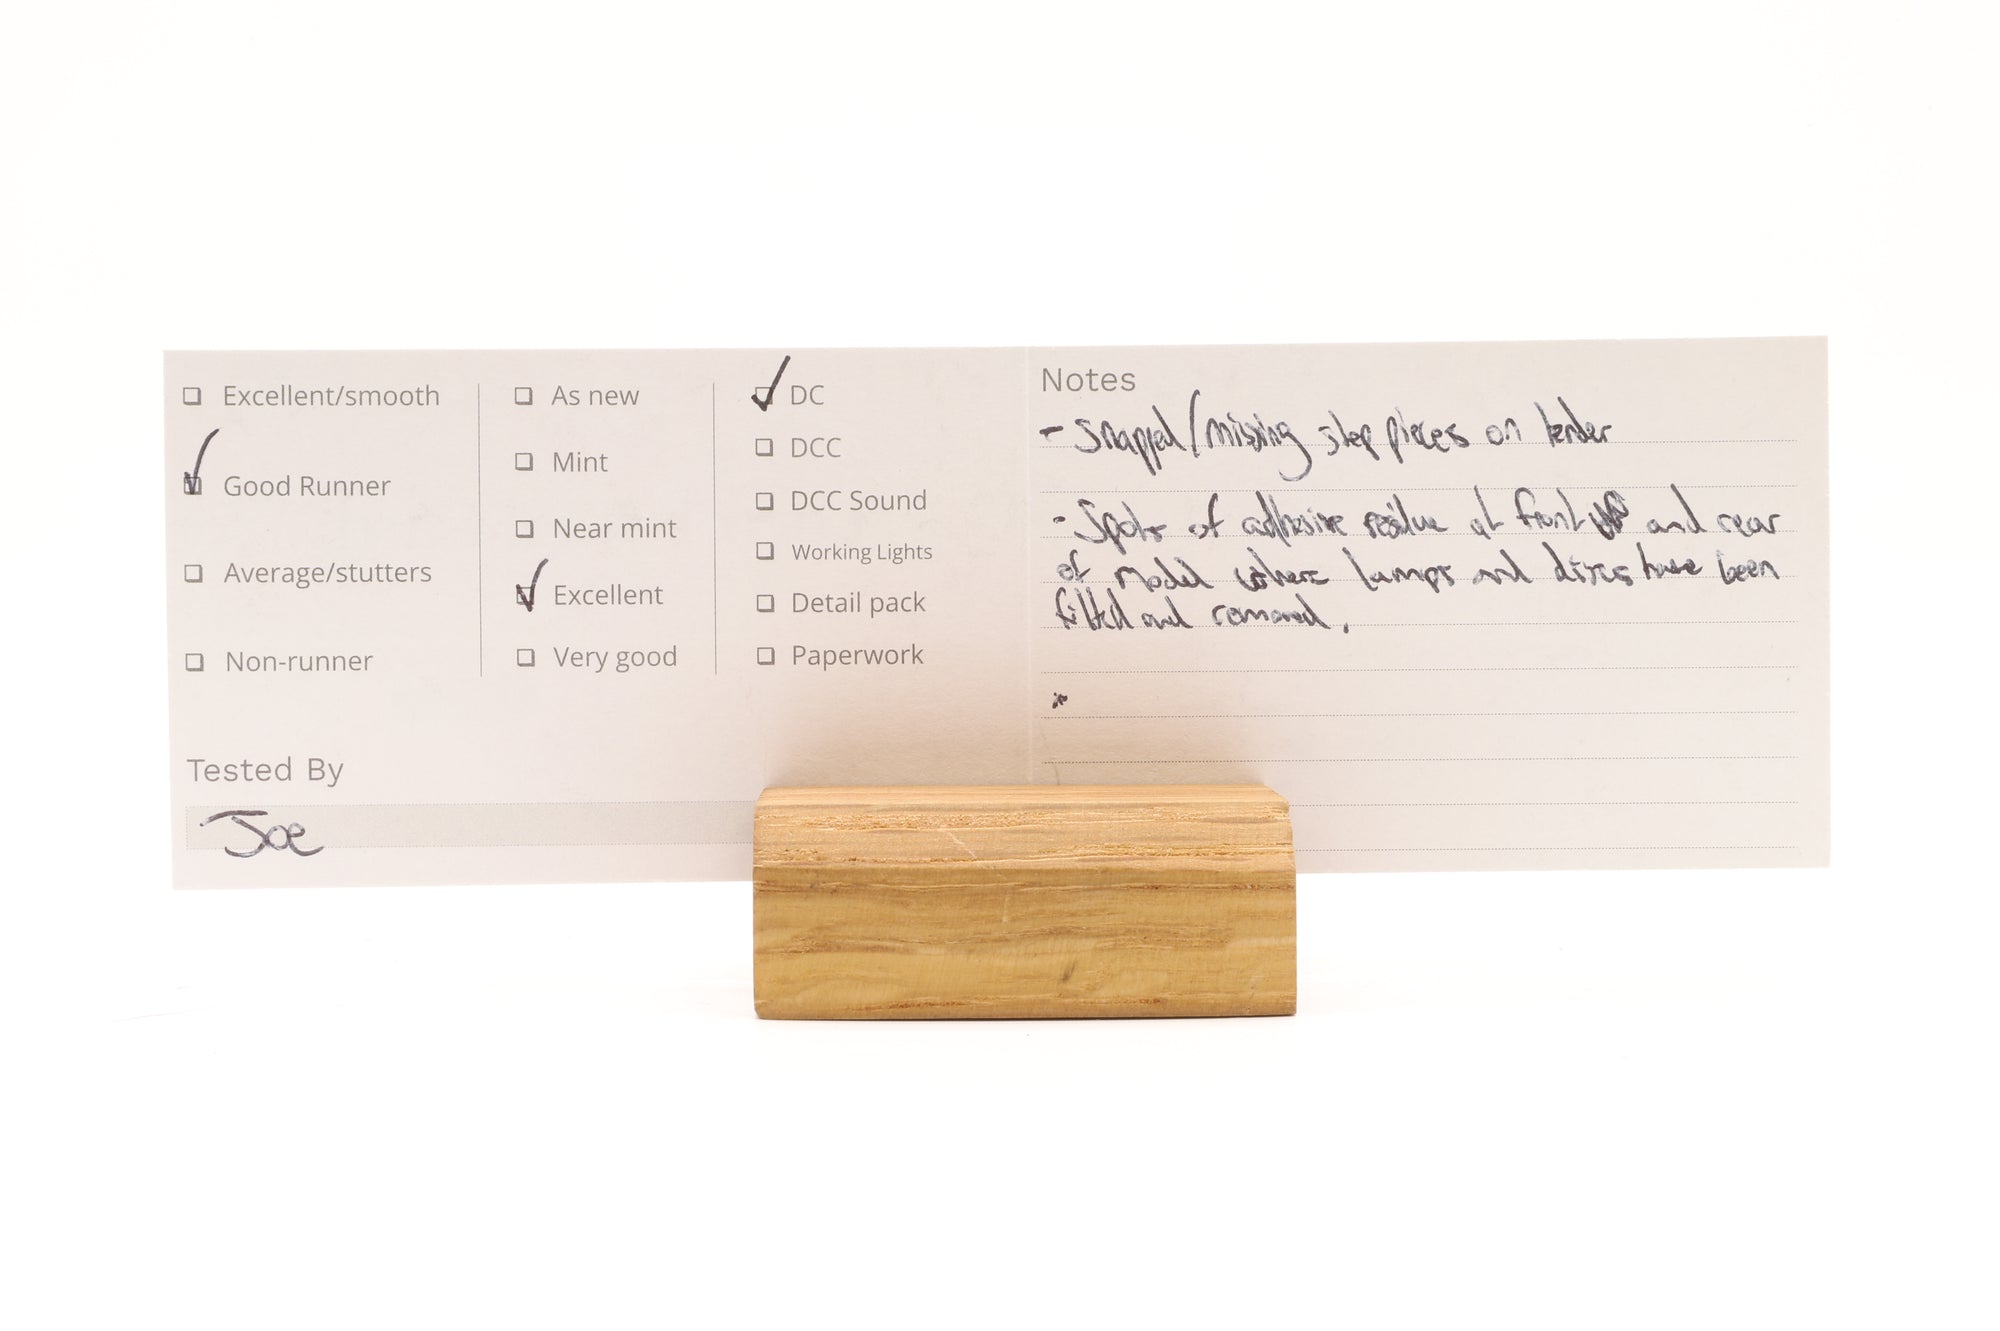 Excellent/smooth
Good Runner
Average/stutters
Non-runner
As new
Mint
Near mint
Excellent
Very good
DC
DCC
DCC Sound
Working Lights
Detail pack
Paperwork
Tested By
Joe
Notes
- Snapped/missing step pieces on tender
- Spots of adhesive residue at front and rear
of model where lamps and discs have been
fitted and removed.